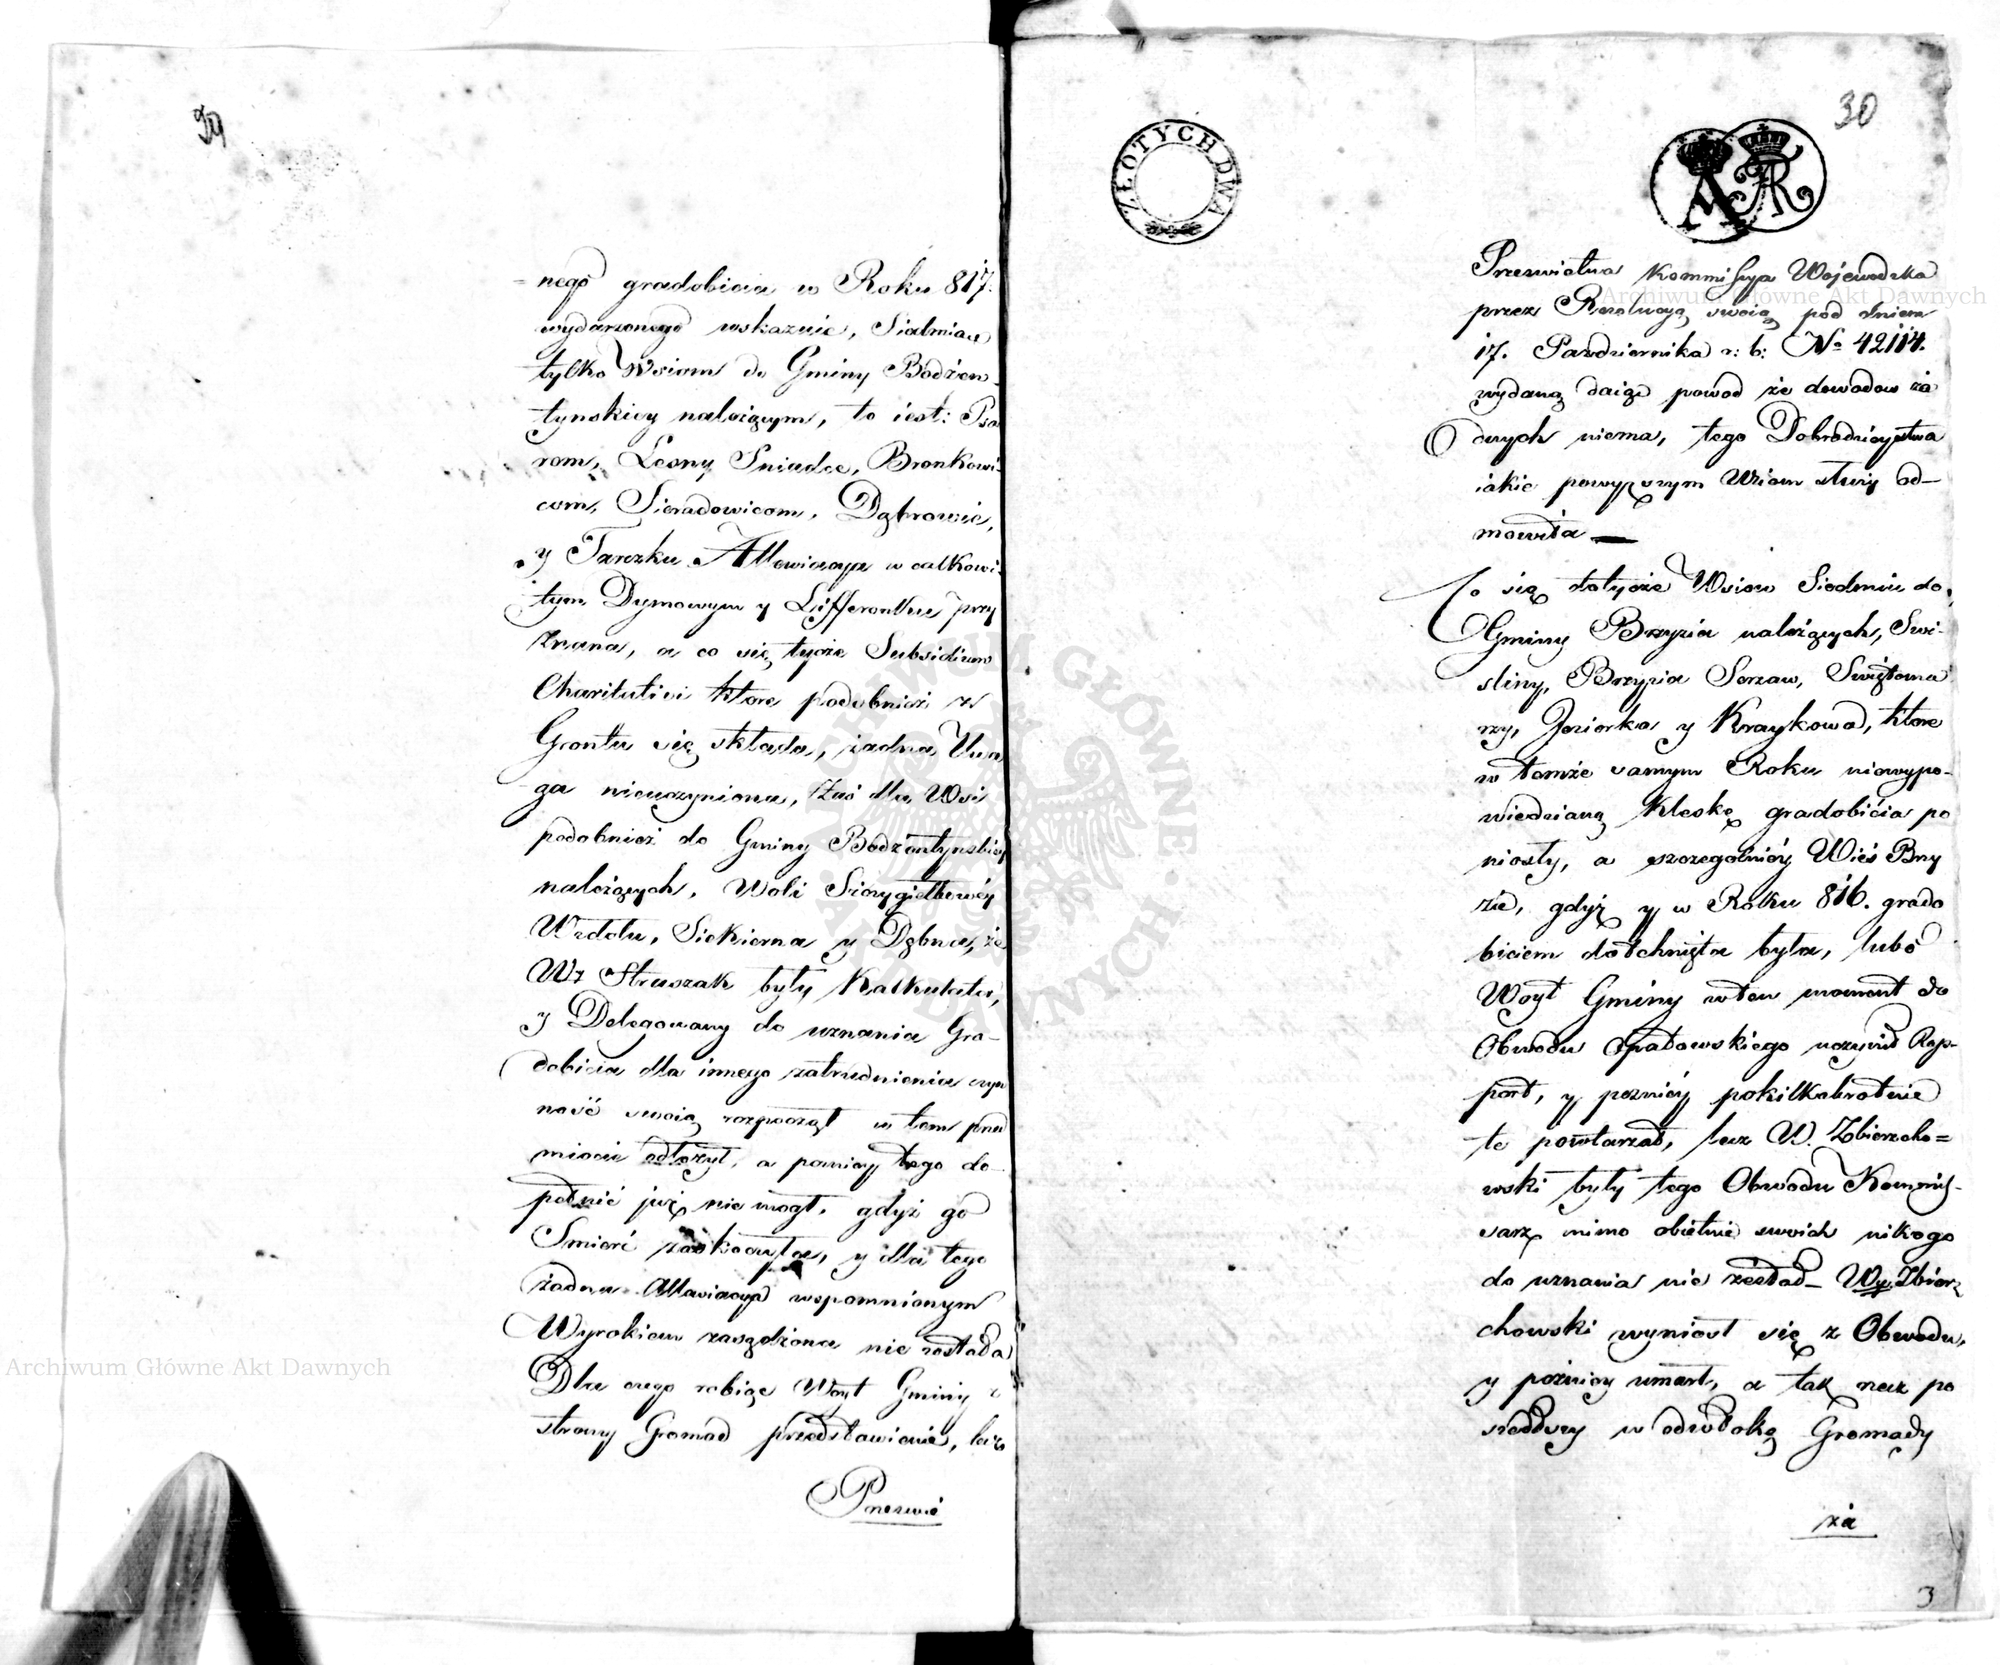 29
-nego gradobicia w Roku 817.
wydarzonego wskazuie, Siedmiu
tylko Wsiom do Gminy Bodzen-
tynskiey należącym, to iest: Psa
rom, Lesny Sniadce, Bronkowi-
com, Sieradowicom, Dąbrowie,
y Tarczku Allewiacya w całkowi-
tym Dymowym y Lifferonku przy
znana, a co się tycze Subsidium
Charitativi ktore podobnież z
Gruntu się składa, żadna Uwa
ga nieuczyniona, Zaś dla Wsi
podobnież do Gminy Bodzentynskiey
należących, Woli Szczygiełkowéy
Wzdołu, Siekierna y Dębna, że
W. Struszak były Kalkulator,
y Delegowany do uznania Gra-
dobicia dla innego zatrudnienia czyn
ność swoią rozpocząć w tem przed
miocie odłożył, a pozniey tego do-
pełnić już nie mogł, gdyż go
Smierć zaskoczyła, y dla tego
żadna Allewiacya wspomnionym
Wyrokiem zasądzona nie została
Dla czego robiąc Woyt Gminy z
strony Gromad przedstawienie, lecz
Przeswie
30
ZŁOTYCH DWA
Przeswietna Kommissya Wojewodzka
przez Rezolucyą swoią pod dniem
17. Pazdziernika r: b: No 42114.
wydaną daiąc powod że dowodow ża
dnych niema, tego Dobrodzieystwa
iakie powyższym Wsiom służy od-
mowiła —
Co się tatycze Wsiow Siedmiu do
Gminy Brzyzia należących, Swi-
sliny, Brzyzia Serzaw, Swiętoma
rzy, Jeziorka y Kraykowa, ktore
w temże samym Roku niewypo-
wiedzianą Klęskę gradobicia po
niosły, a szczegolniéy Wieś Brzy
zie, gdyż y w Roku 816. grado
biciem dotchnięta była, lubo
Woyt Gminy w ten moment do
Obwodu Opatowskiego uczynił Rap-
port, y poznieÿ pokilkakrotnie
te powtarzał, lecz W. Zbierzcho=
wski były tego Obwodu Kommis-
sarz mimo obietnic swoich nikogo
do uznania nie zesłał– Wy Zbierz
chowski wyniosł się z Obwodu,
y pozniey umarł, a tak rzecz po
szedłszy w odwłokę Gromady
za
3
Archiwum Główne Akt Dawnych
Archiwum Główne Akt Dawnych
ARCHIWUM GŁÓWNE AKT DAWNYCH